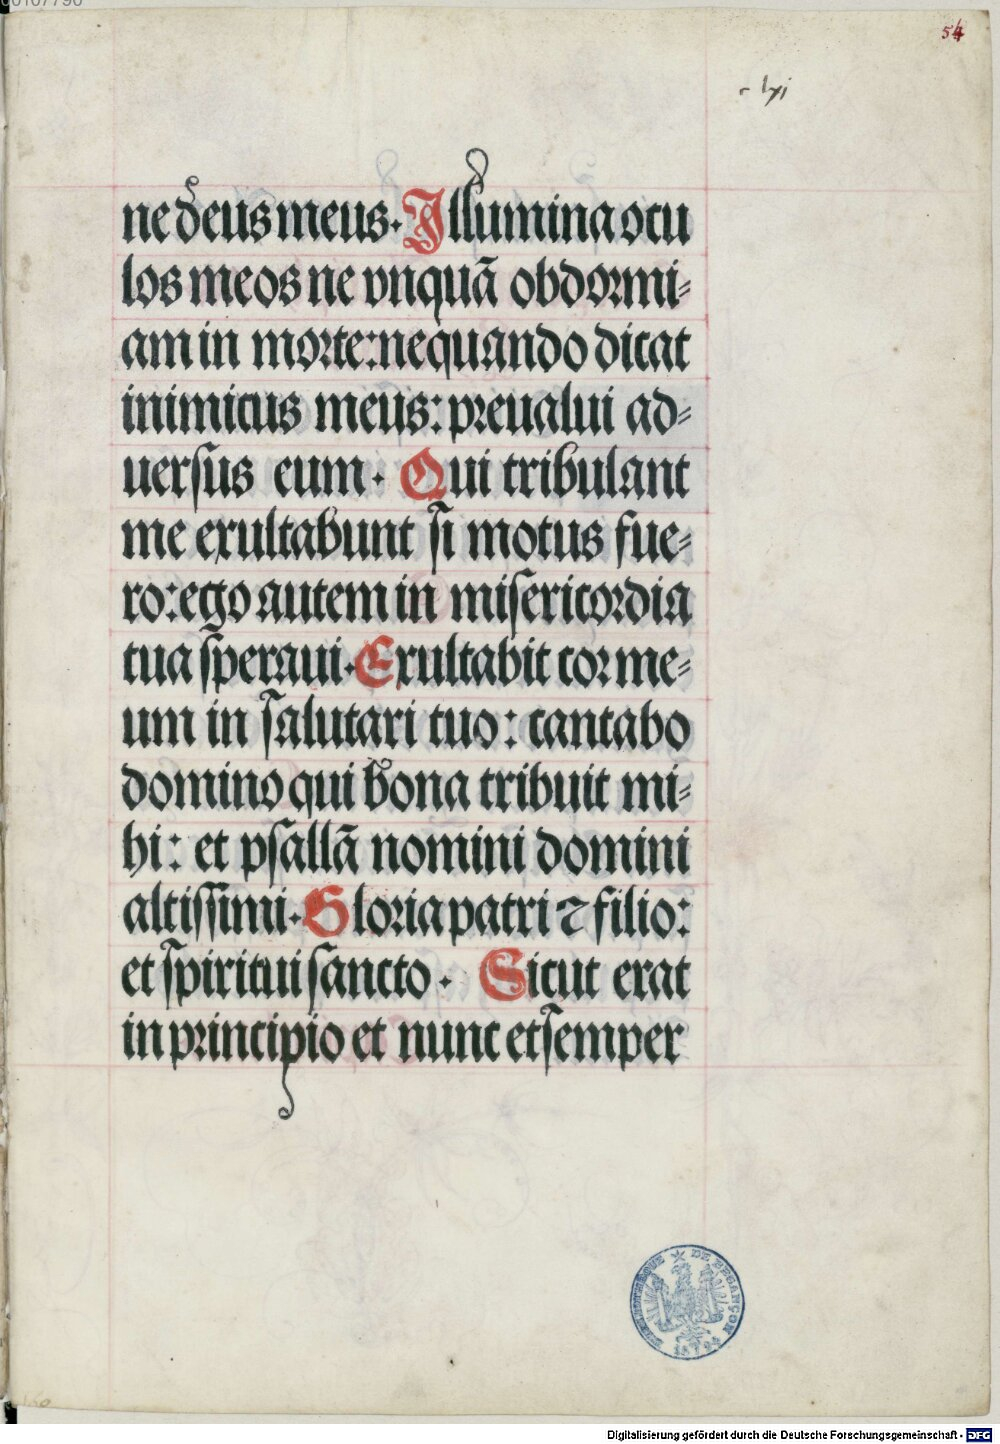 54
lxi
ne deus meus. Illumina ocu
los meos ne vnquā obdormi⸗
am in morte: nequando dicat
inimicus meus: preualui ad⸗
uersus eum. Qui tribulant
me exultabunt si motus fue⸗
ro: ego autem in misericordia
tua speraui. Exultabit cor me⸗
um in salutari tuo: cantabo
domino qui bona tribuit mi⸗
hi: et psallā nomini domini
altissimi. Gloria patri ⁊ filio:
et spiritui sancto. Sicut erat
in principio et nunc et semper
BIBLIOTHEQUE DE BESANÇON
Digitalisierung gefördert durch die Deutsche Forschungsgemeinschaft - DFG